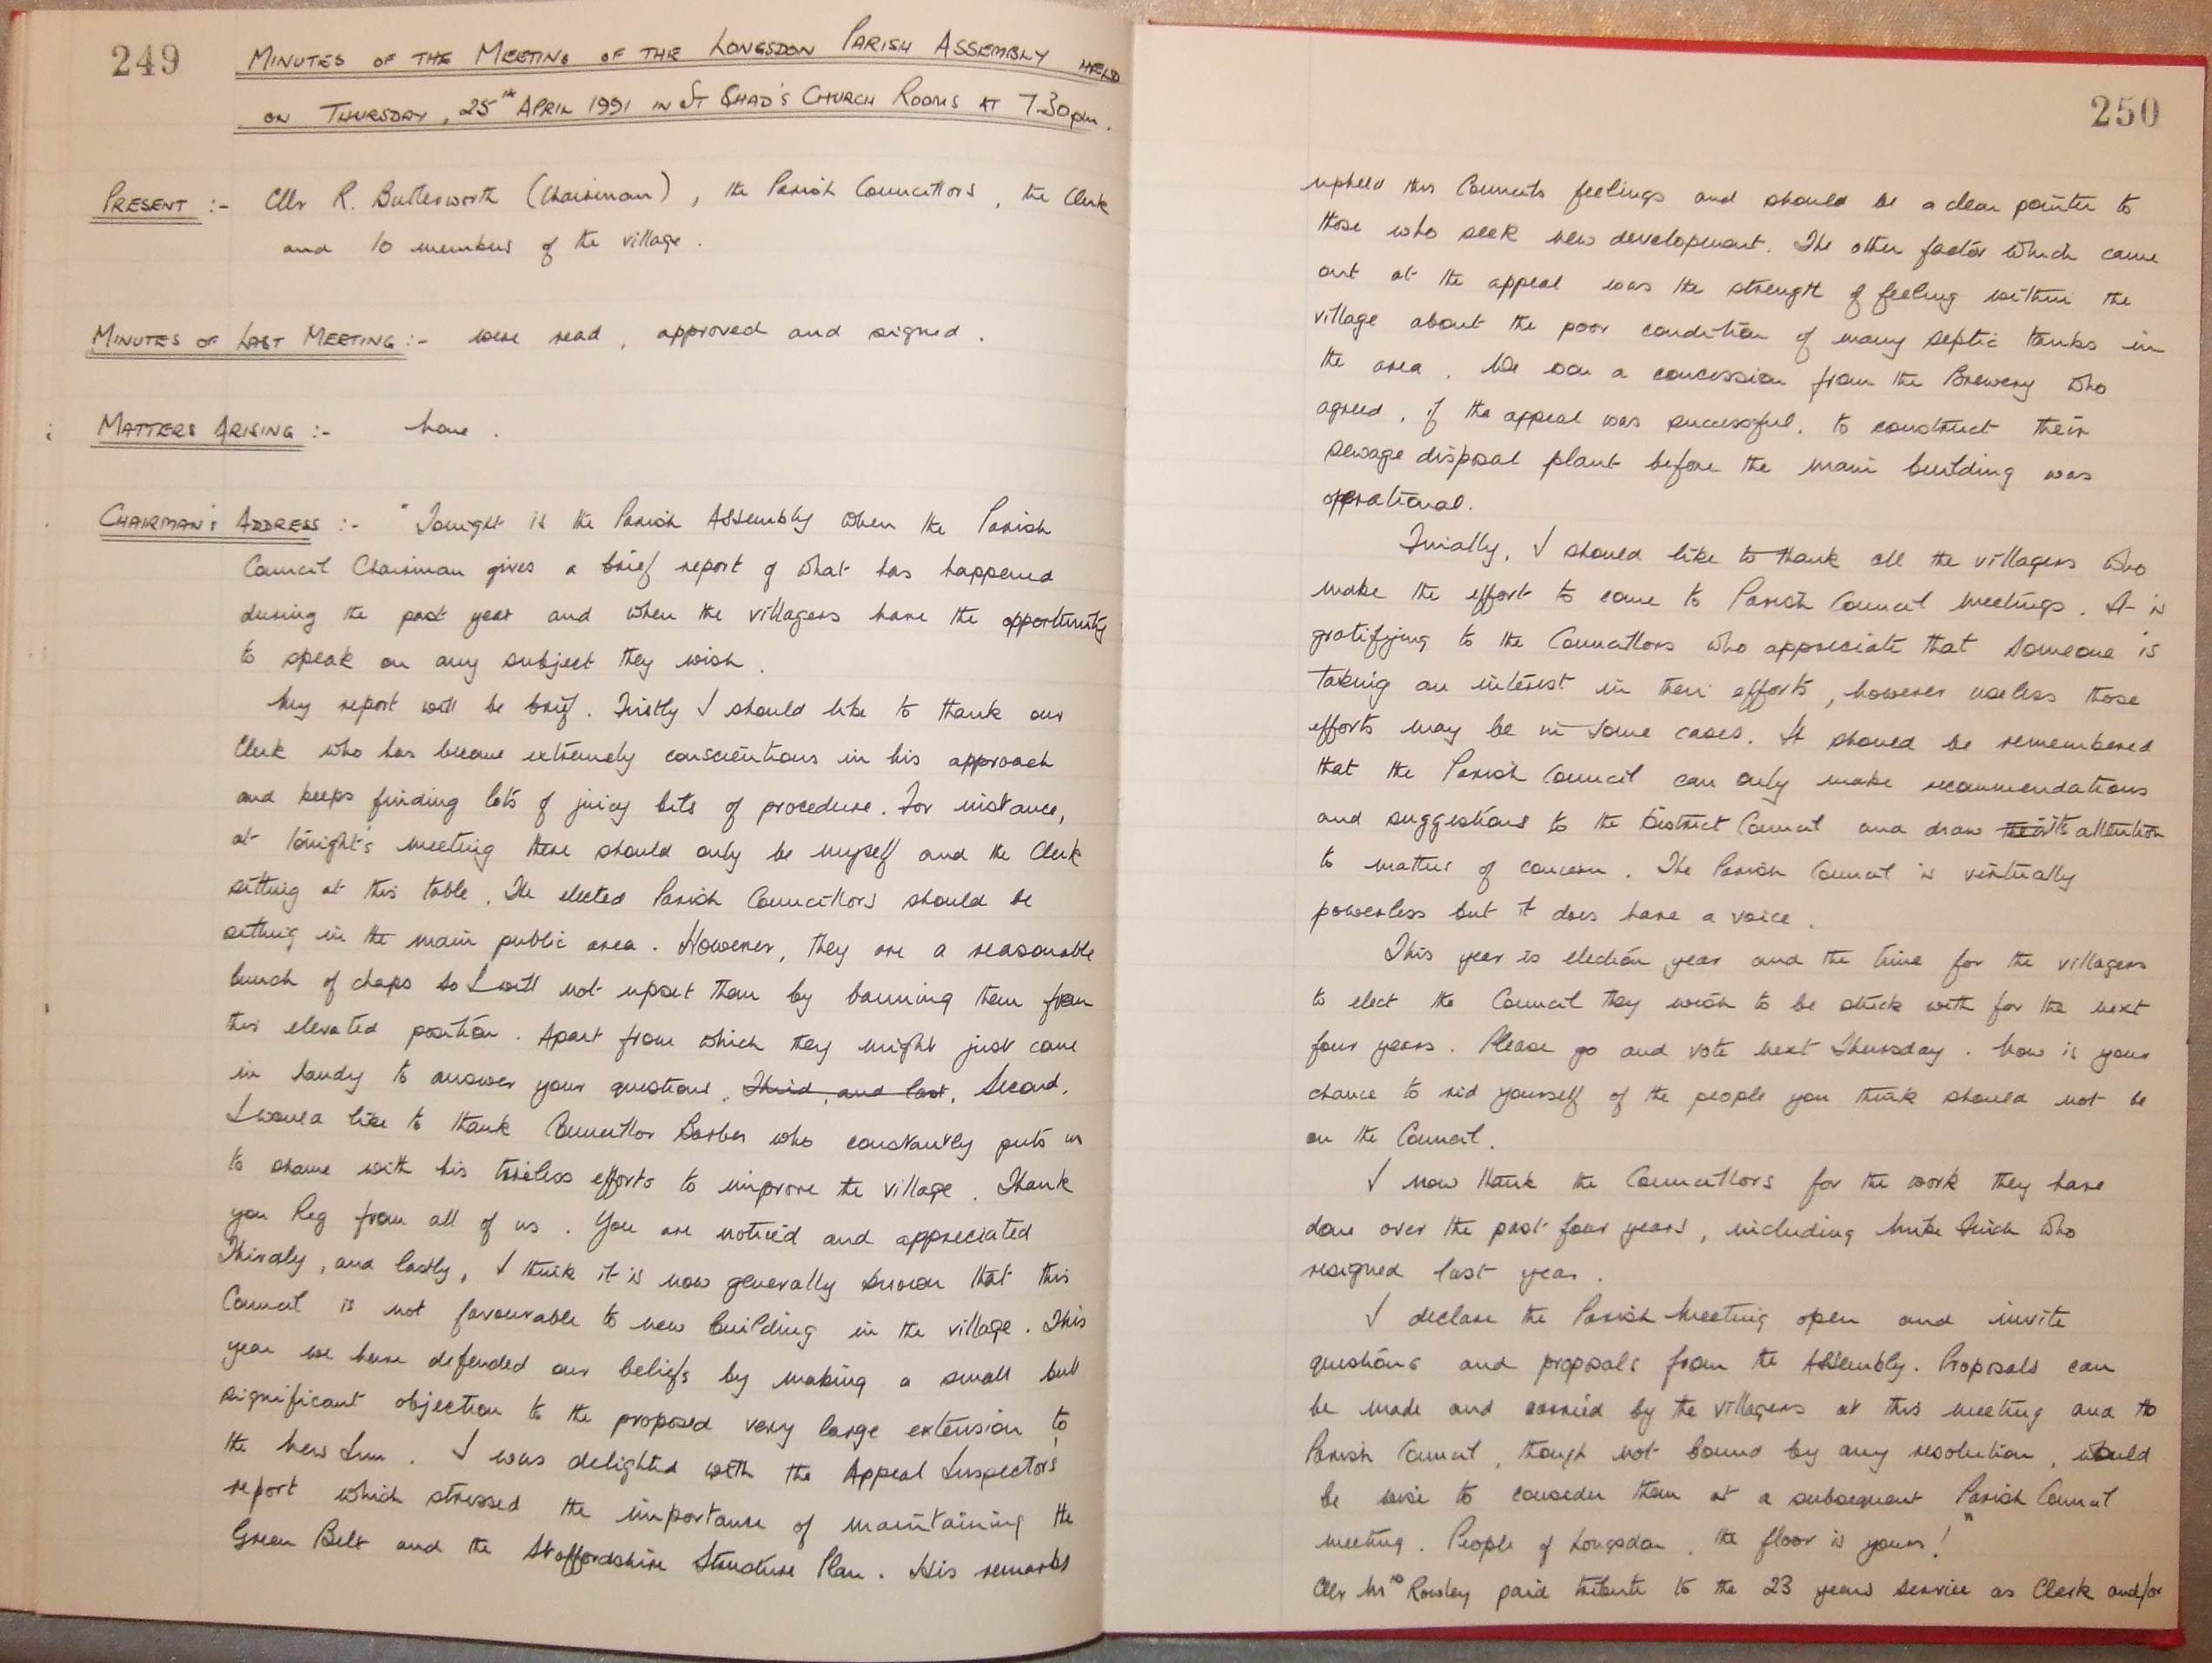 249
MINUTES OF THE MEETING OF THE LONGSDON PARISH ASSEMBLY HELD
ON THURSDAY, 25th APRIL 1991 IN ST CHAD'S CHURCH ROOMS AT 7.30pm.
PRESENT :- Cllr R. Butterworth (Chairman), the Parish Councillors, the Clerk
and 10 members of the village.
MINUTES OF LAST MEETING :- were read, approved and signed.
MATTERS ARISING :- None.
CHAIRMAN'S ADDRESS :- "Tonight is the Parish Assembly when the Parish
Council Chairman gives a brief report of what has happened
during the past year and when the villagers have the opportunity
to speak on any subject they wish.
My report will be brief. Firstly I should like to thank our
Clerk who has become extremely conscientious in his approach
and keeps finding lots of juicy bits of procedure. For instance,
at tonight's meeting there should only be myself and the Clerk
sitting at this table. The elected Parish Councillors should be
sitting in the main public area. However, they are a reasonable
bunch of chaps so I will not upset them by banning them from
this elevated position. Apart from which they might just come
in handy to answer your questions. Third, and last, Second,
I would like to thank Councillor Barber who constantly puts us
to shame with his tireless efforts to improve the village. Thank
you Reg from all of us. You are noticed and appreciated
Thirdly, and lastly, I think it is now generally known that this
Council is not favourable to new building in the village. This
year we have defended our beliefs by making a small but
significant objection to the proposed very large extension to
the New Inn. I was delighted with the Appeal Inspectors'
report which stressed the importance of maintaining the
Green Belt and the Staffordshire Structure Plan. His remarks
250
upheld this Councils feelings and should be a clear pointer to
those who seek new development. The other factor which came
out at the appeal was the strength of feeling within the
village about the poor condition of many septic tanks in
the area. We won a concession from the Brewery who
agreed, if the appeal was successful, to construct their
sewage disposal plant before the main building was
operational.
Finally, I should like to thank all the villagers who
make the effort to come to Parish Council meetings. It is
gratifying to the Councillors who appreciate that someone is
taking an interest in their efforts, however useless those
efforts may be in some cases. It should be remembered
that the Parish Council can only make recommendations
and suggestions to the District Council and draw their its attention
to matters of concern. The Parish Council is virtually
powerless but it does have a voice.
This year is election year and the time for the villagers
to elect the Council they wish to be stuck with for the next
four years. Please go and vote next Thursday. Now is your
chance to rid yourself of the people you think should not be
on the Council.
I now thank the Councillors for the work they have
done over the past four years, including Mike who
resigned last year.
I declare the Parish Meeting open and invite
questions and proposals from the Assembly. Proposals can
be made and carried by the villagers at this meeting and the
Parish Council, though not bound by any resolution, would
be wise to consider them at a subsequent Parish Council
meeting. People of Longsdon, the floor is yours!"
Cllr Mrs Rowley paid tribute to the 23 years service as Clerk and/or